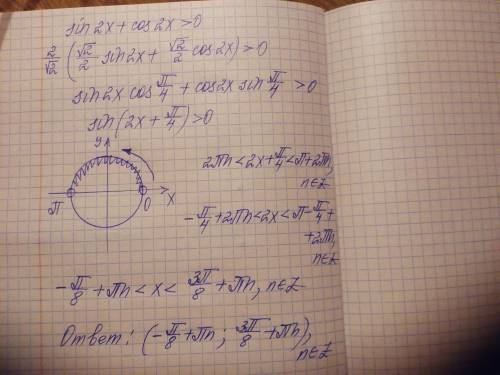 sin2x + cos2x > 0
2/√2 (√2/2 sin2x + √2/2 cos2x) > 0
sin2x cos π/4 + cos2x sin π/4 > 0
sin(2x + π/4) > 0
y
π 0 x
2πn < 2x + π/4 < π + 2πn,
n∈Z
-π/4 + 2πn < 2x < π - π/4 +
+ 2πn,
n∈Z
-π/8 + πn < x < 3π/8 + πn, n∈Z
Ответ: (-π/8 + πn; 3π/8 + πn),
n∈Z